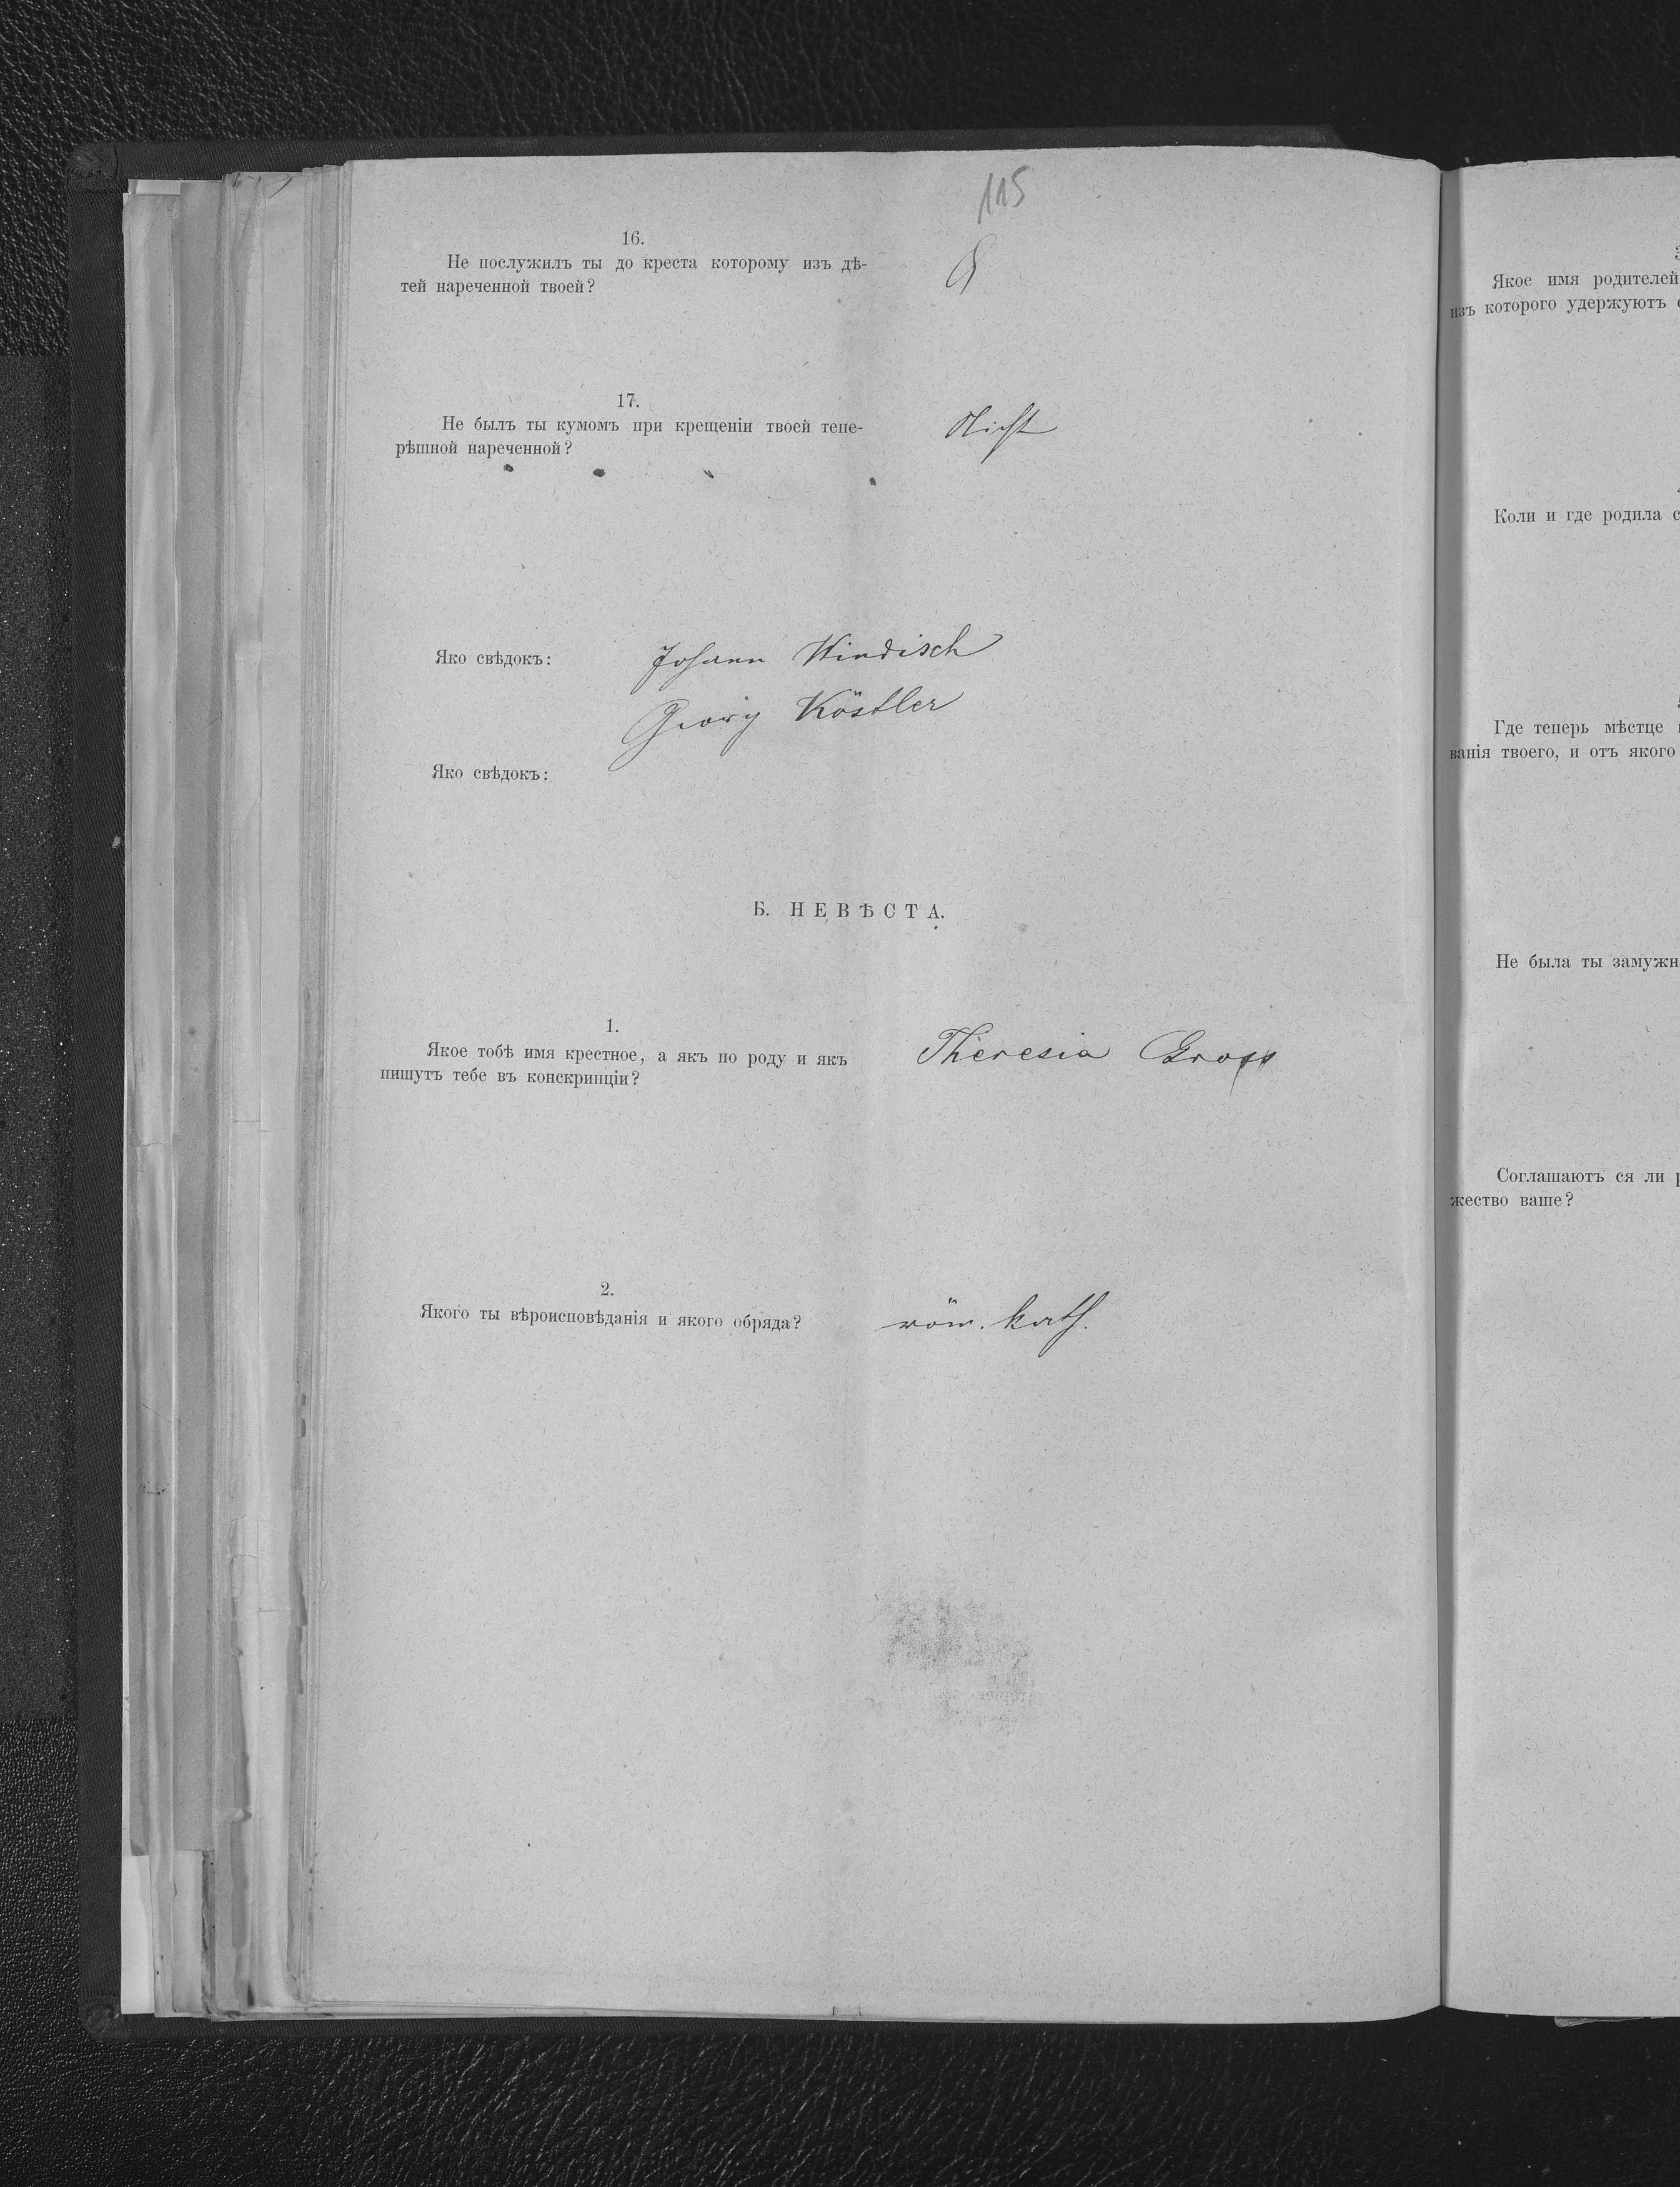 115
16.
Не послужилъ ты до креста которому изъ дѣ-
тей нареченной твоей?
17.
Не былъ ты кумомъ при крещеніи твоей тепе-
рѣшной нареченной?
Nicht
Яко свѣдокъ: Johann Windisch
Georg Köstler
Яко свѣдокъ:
Б. НЕВѢСТА.
1.
Якое тобѣ имя крестное, а якъ по роду и якъ
пишутъ тебе въ конскрипціи?
Theresia Gross
2.
Якого ты вѣроисповѣданія и якого обряда?
röm. kath.
Якое имя родителей
изъ которого удержуютъ
Коли и где родила
Где теперь мѣстце
ванія твоего, и отъ якого
Не была ты замужн
Соглашаютъ ся ли
жество ваше?